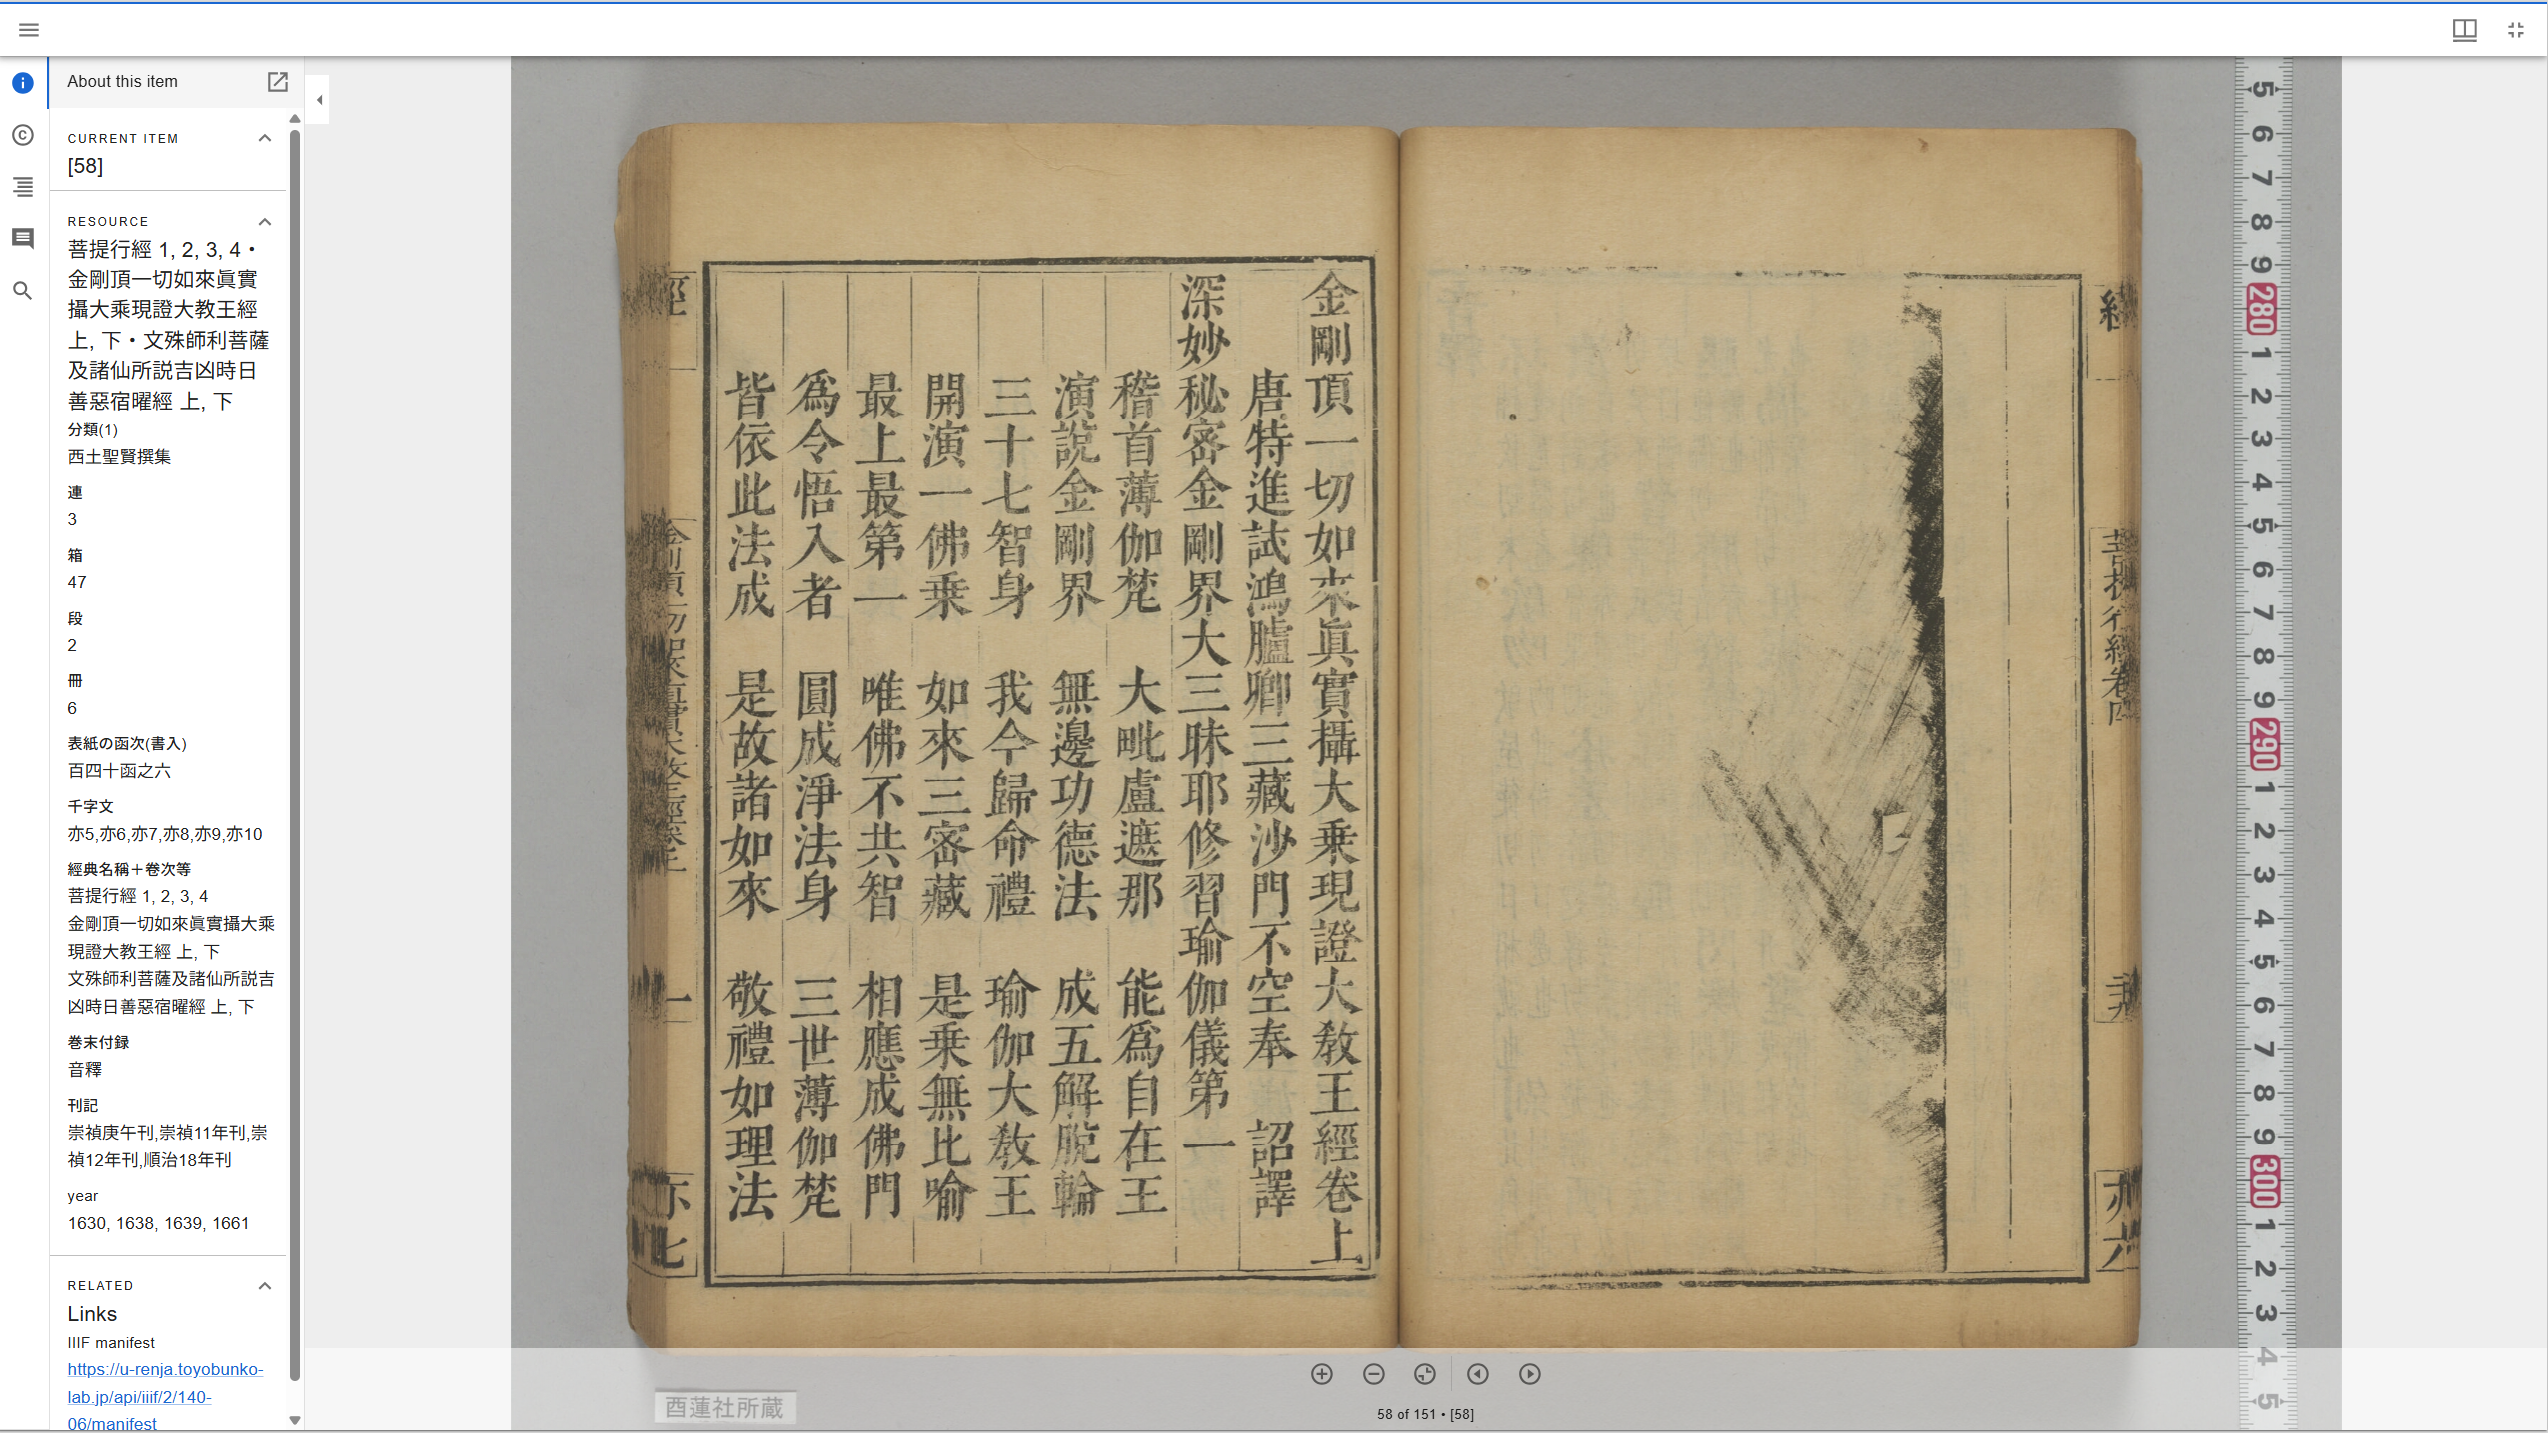 About this item
CURRENT ITEM
[58]
RESOURCE
菩提行經 1, 2, 3, 4・
金剛頂一切如來眞實
攝大乘現證大教王經
上, 下・文殊師利菩薩
及諸仙所説吉凶時日
善惡宿曜經 上, 下
分類(1)
西土聖賢撰集
連
3
箱
47
段
2
冊
6
表紙の函次(書入)
百四十函之六
千字文
亦5,亦6,亦7,亦8,亦9,亦10
經典名稱＋卷次等
菩提行經 1, 2, 3, 4
金剛頂一切如來眞實攝大乘
現證大教王經 上, 下
文殊師利菩薩及諸仙所説吉
凶時日善惡宿曜經 上, 下
巻末付録
音釋
刊記
崇禎庚午刊,崇禎11年刊,崇
禎12年刊,順治18年刊
year
1630, 1638, 1639, 1661
RELATED
Links
IIIF manifest
https://u-renja.toyobunko-
lab.jp/api/iiif/2/140-
06/manifest
菩提行經卷四
亦六
金剛頂一切如來眞實攝大乘現證大教王經卷上
唐特進試鴻臚卿三藏沙門不空奉 詔譯
深妙秘密金剛界大三昧耶修習瑜伽儀第一
稽首薄伽梵 大毗盧遮那 能爲自在王
演說金剛界 無邊功德法 成五解脫輪
三十七智身 我今歸命禮 瑜伽大教王
開演一佛乘 如來三密藏 是乘無比喻
最上最第一 唯佛不共智 相應成佛門
爲令悟入者 圓成淨法身 三世薄伽梵
皆依此法成 是故諸如來 敬禮如理法
經
一
亦七
5
6
7
8
9
280
1
2
3
4
5
6
7
8
9
290
1
2
3
4
5
6
7
8
9
300
1
2
3
4
5
酉蓮社所蔵
58 of 151 • [58]